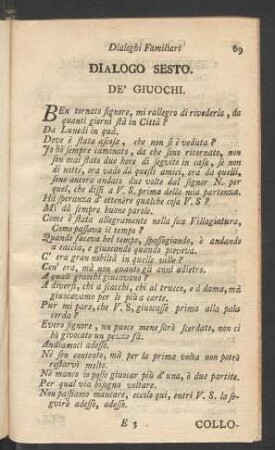 Dialoghi Familiari 69
DIALOGO SESTO.
DE' GIUOCHI.
BEn tornato signore, mi rallegro di rivederla, da
quanti giorni stà in Città?
Da Lunedì in quà.
Dove è stata ascosa, che non si è veduta?
Io hò sempre caminato, da che sino ritornato, non
son mai stato due hore di seguito in casa, se non
di notte, ora vado dà questi amici, ora da quelli,
sono ancora andato due volte dal signor N. per
quel, che dissi a V. S. prima della mia partenza.
Hà speranza d' ottenere qualche cosa V. S?
Mi dà sempre buone parole.
Come è stata allegramente nella sua Villagiatura,
Come passava il tempo?
Quando faceva bel tempo, spasseggiando, ò andando
a caccia, e giuocando quando pioveva.
C' era gran nobiltà in quelle ville?
Cen' era, mà non quanto gli anni adietro.
A quali giuochi giuocavano?
A diversi, chi a scacchi, chi al trucco, e à dama, mà
giuocavamo per lo più a carte.
Pur mi pare, che V. S. giuocasse prima alla pala
corda?
E vero signore, un puoco mene sarò scordato, non ci
hò giuocato un pezzo fà.
Andiamoci adesso.
Nè son contento, mà per la prima volta non potrò
restarvi molto.
Nè manco io posso giuocar più d' una, ò due partite.
Per qual via bisogna voltare.
Non possiamo mancare, eccolo quì, entri V. S. la se-
gvirò adesso, adesso.
E 3 COLLO-